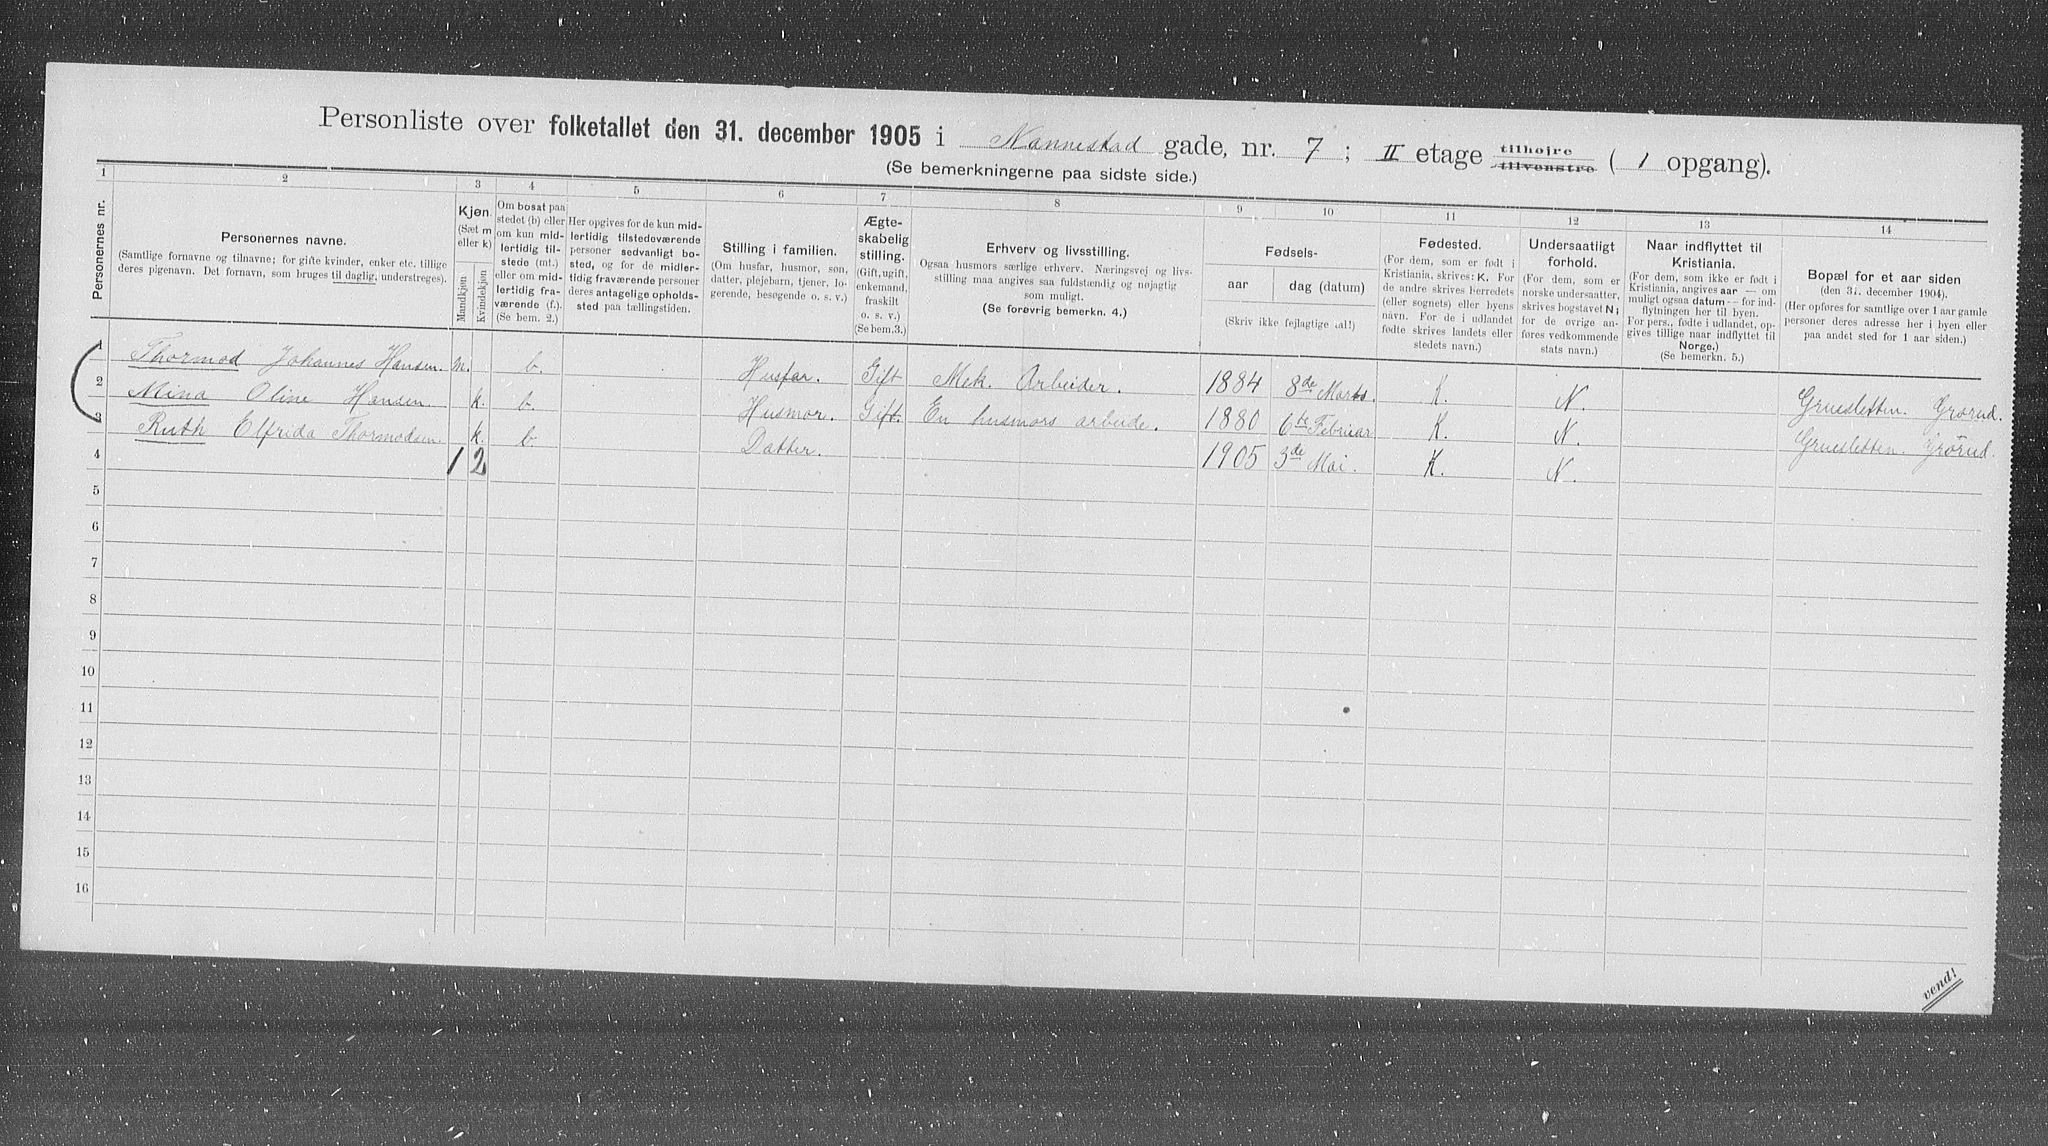 Personliste over folketallet den 31. december 1905 i Nannestad gade, nr. 7 ; II etage tilhøire tilvenstre ( 1 opgang).
(Se bemerkningerne paa sidste side.)
1 2 3 4 5 6 7 8 9 10 11 12 13 14
Personernes nr.
Personernes navne.
(Samtlige fornavne og tilnavne; for gifte kvinder, enker etc. tillige
deres pigenavn. Det fornavn, som bruges til daglig, understreges).
Kjøn.
(Sæt m
eller k)
Mandkjøn
Kvindekjøn
Om bosat paa
stedet (b) eller
om kun mid-
lertidig til-
stede (mt.)
eller om mid-
lertidig fra-
værende (f.).
(Se bem. 2.)
Her opgives for de kun mid-
lertidig tilstedeværende
personer sedvanligt bo-
sted, og for de midler-
tidig fraværende personer
deres antagelige opholds-
sted paa tællingstiden.
Stilling i familien.
(Om husfar, husmor, søn,
datter, plejebarn, tjener, lo-
gerende, besøgende o. s. v.)
Ægte-
skabelig
stilling.
(Gift, ugift,
enkemand,
fraskilt
o. s. v.)
(Se bem. 3.)
Erhverv og livsstilling.
Ogsaa husmors særlige erhverv. Næringsvej og livs-
stilling maa angives saa fuldstændig og nøjagtig
som muligt.
(Se forøvrig bemerkn. 4.)
Fødsels-
aar
dag (datum)
(Skriv ikke fejlagtige tal!)
Fødested.
(For dem, som er født i
Kristiania, skrives: K. For
de andre skrives herredets
(eller sognets) eller byens
navn. For de i udlandet
fødte skrives landets eller
stedets navn.)
Undersaatligt
forhold.
(For dem, som er
norske undersaatter,
skrives bogstavet N;
for de øvrige an-
føres vedkommende
stats navn.)
Naar indflyttet til
Kristiania.
(For dem, som ikke er født i
Kristiania, angives aar — om
muligt ogsaa datum — for ind-
flytningen her til byen.
For pers., fødte i udlandet, op-
gives tillige naar indflyttet til
Norge.)
(Se bemerkn. 5.)
Bopæl for et aar siden
(den 31. december 1904).
(Her opføres for samtlige over 1 aar gamle
personer deres adresse her i byen eller
paa andet sted for 1 aar siden.)
1 Thormod Johannes Hansen. m. b. Husfar. Gift Mek. Arbeider. 1884 8de Marts. K. N. Gruesletten. Grorud.
2 Mina Oline Hansen k. b. Husmor. Gift. En husmors arbeide. 1880 6te Februar K. N. Gruesletten. Grorud.
3 Ruth Elfrida Thormodsen. k. b. Datter. 1905 3de Mai. K. N.
4 1 2
5
6
7
8
9
10
11
12
13
14
15
16
vend!